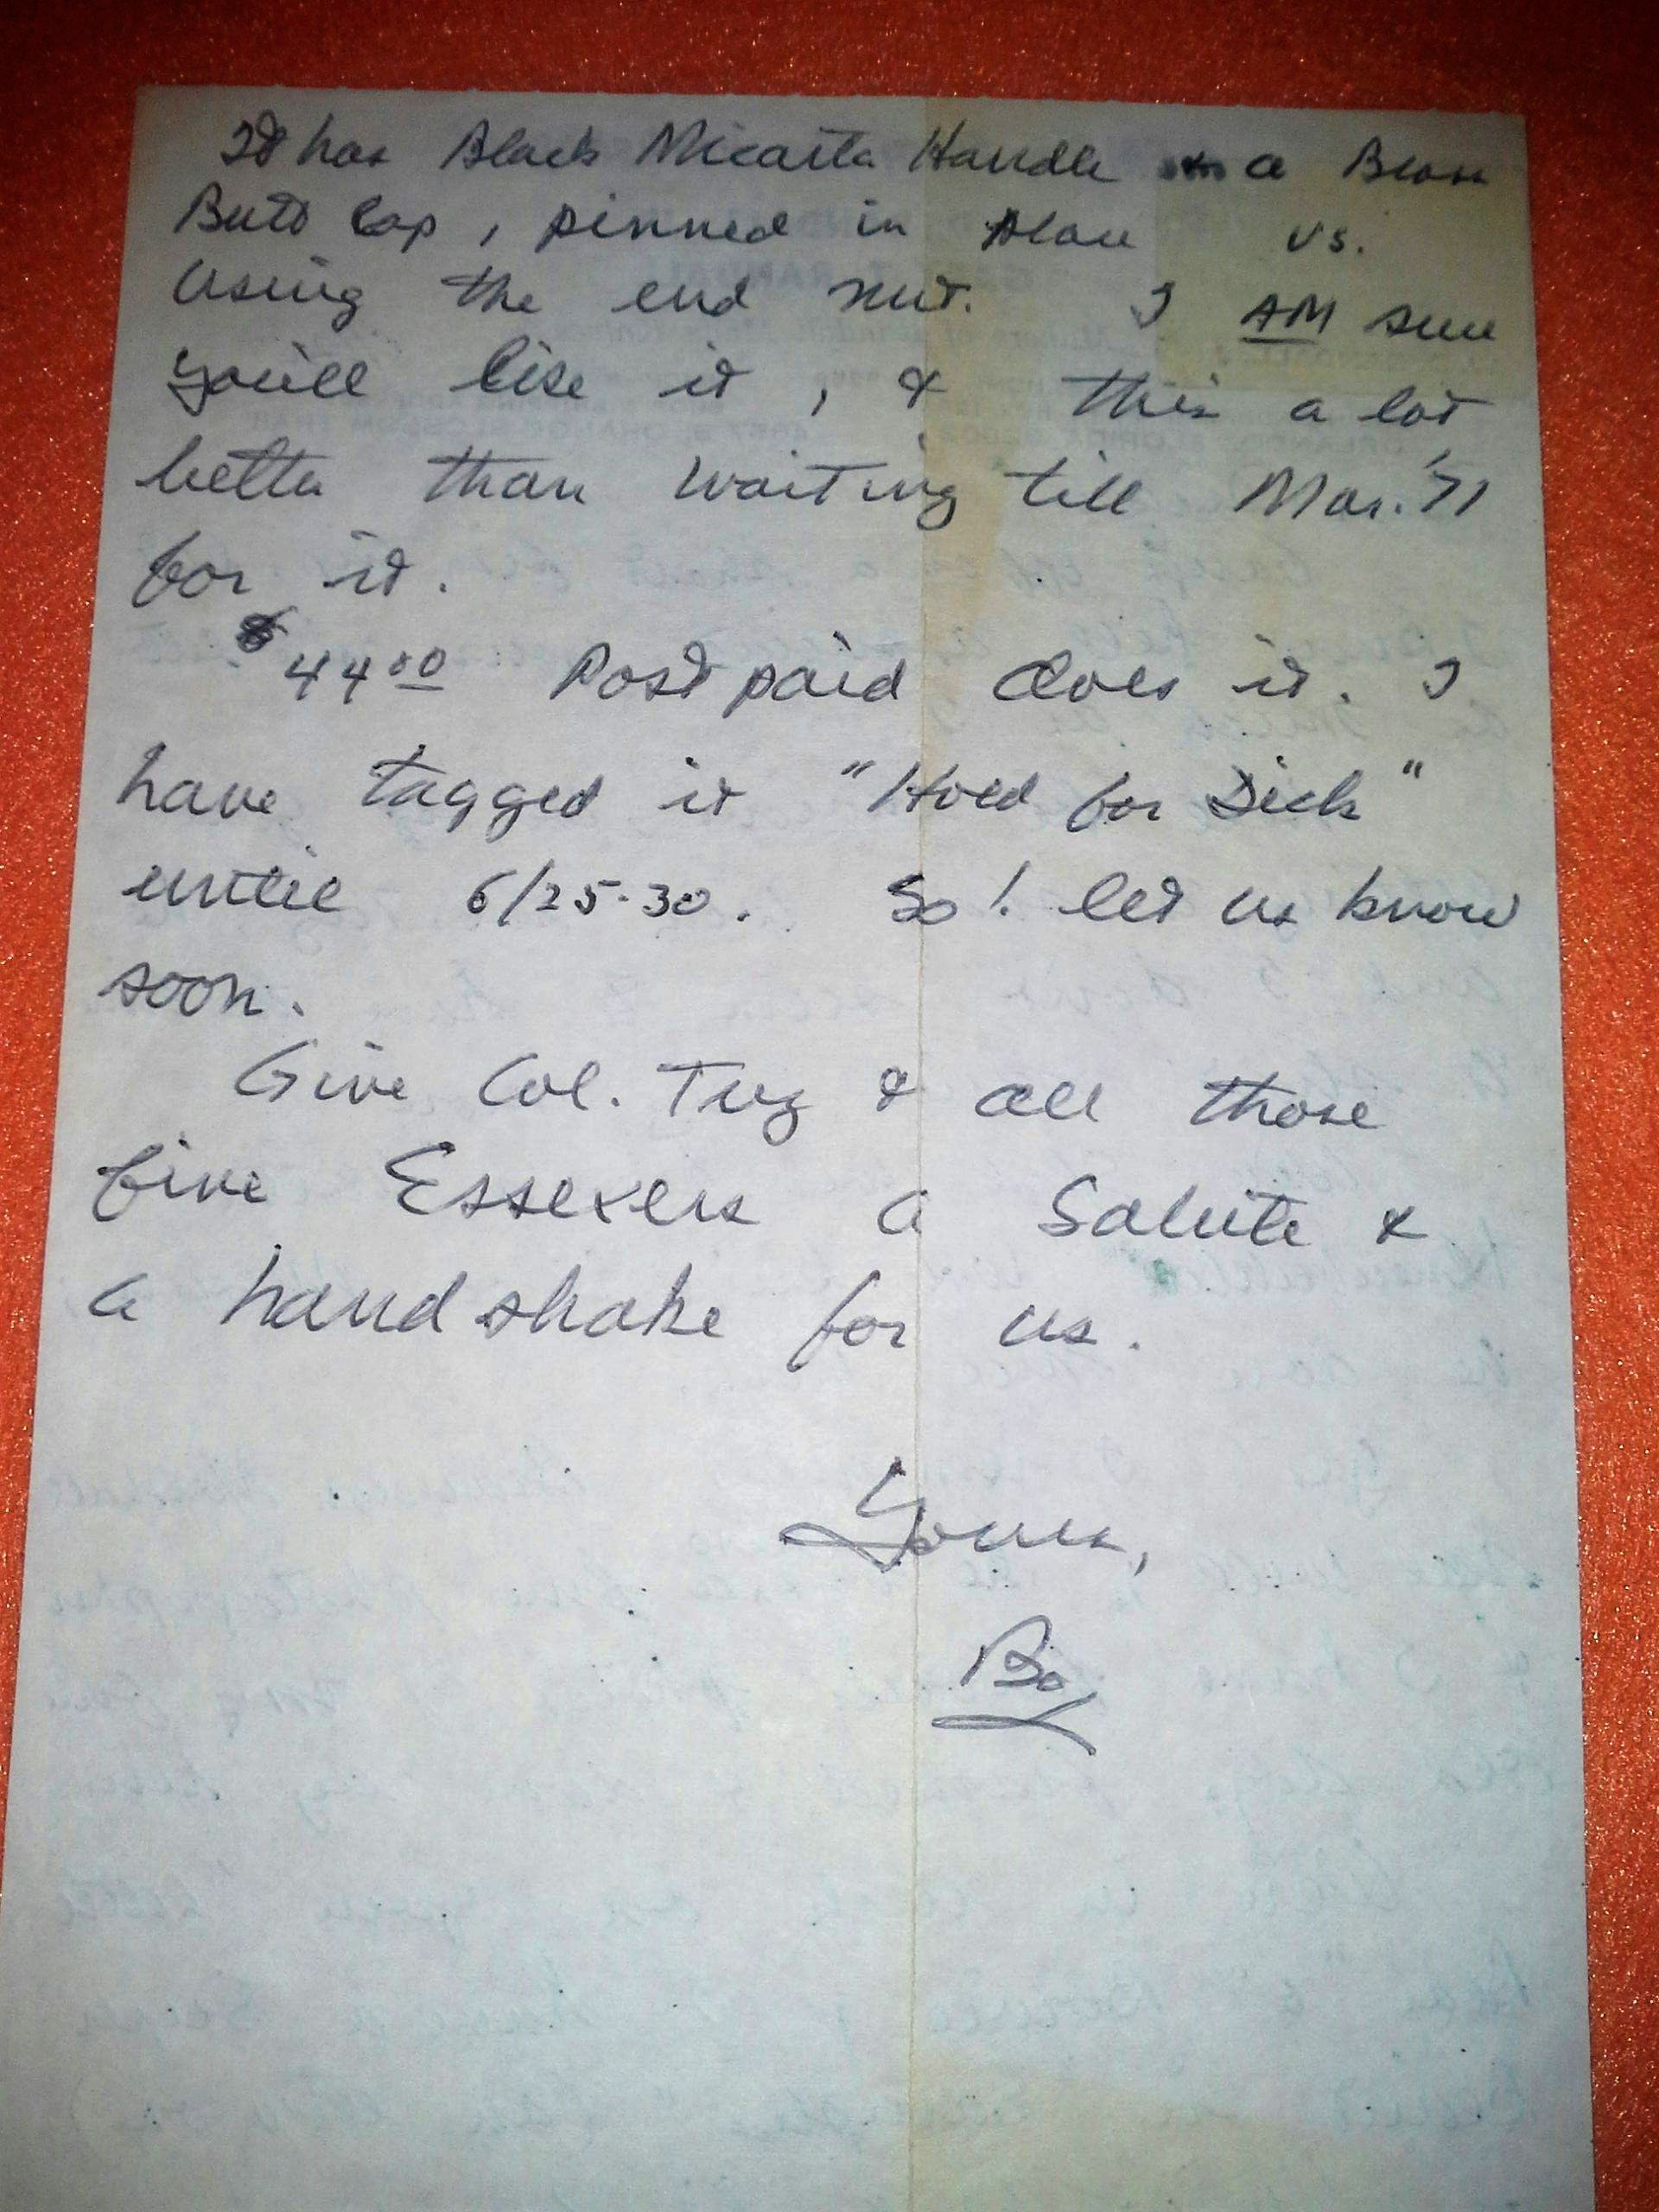 It has Black Micarta Handle a Brass
Butt Cap, pinned in place vs.
using the end nut. I AM sure
you'll like it, & this a lot
better than waiting till Mar. '71
for it.
$44.00 Postpaid does it. I
have tagged it "Hold for Dick"
until 6/25-30. So! let us know
soon.
Give Col. Tug & all those
fine Essexers a Salute &
a handshake for us.
Yours,
Bo